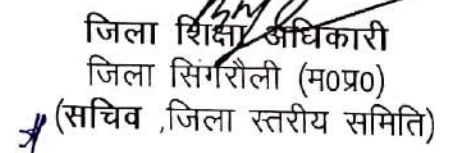 जिला शिक्षा अधिकारी
जिला सिंगरौली (म०प्र०)
(सचिव ,जिला स्तरीय समिति)